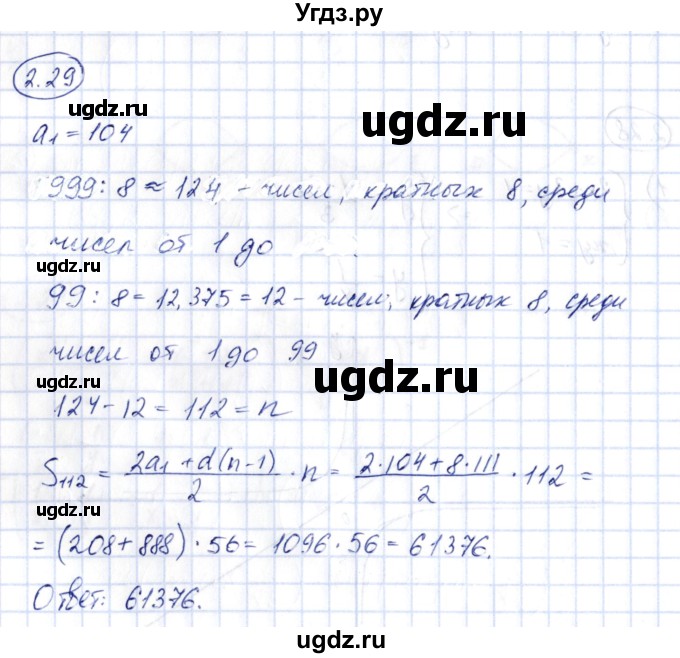 Угдз.ру
2.29
ugdz.ru
a₁ = 104
ugdz.ru
999 : 8 ≈ 124 - чисел, кратных 8, среди
чисел от 1 до
ugdz.ru
99 : 8 = 12,375 = 12 - чисел, кратных 8, среди
чисел от 1 до 99
ugdz.ru
ugdz.ru
124 - 12 = 112 = n
S₁₁₂ = (2a₁ + d(n-1))/2 · n = (2·104 + 8·111)/2 · 112 =
ugdz.ru
= (208 + 888) · 56 = 1096 · 56 = 61376.
Ответ: 61376.
ugdz.ru
ugdz.ru